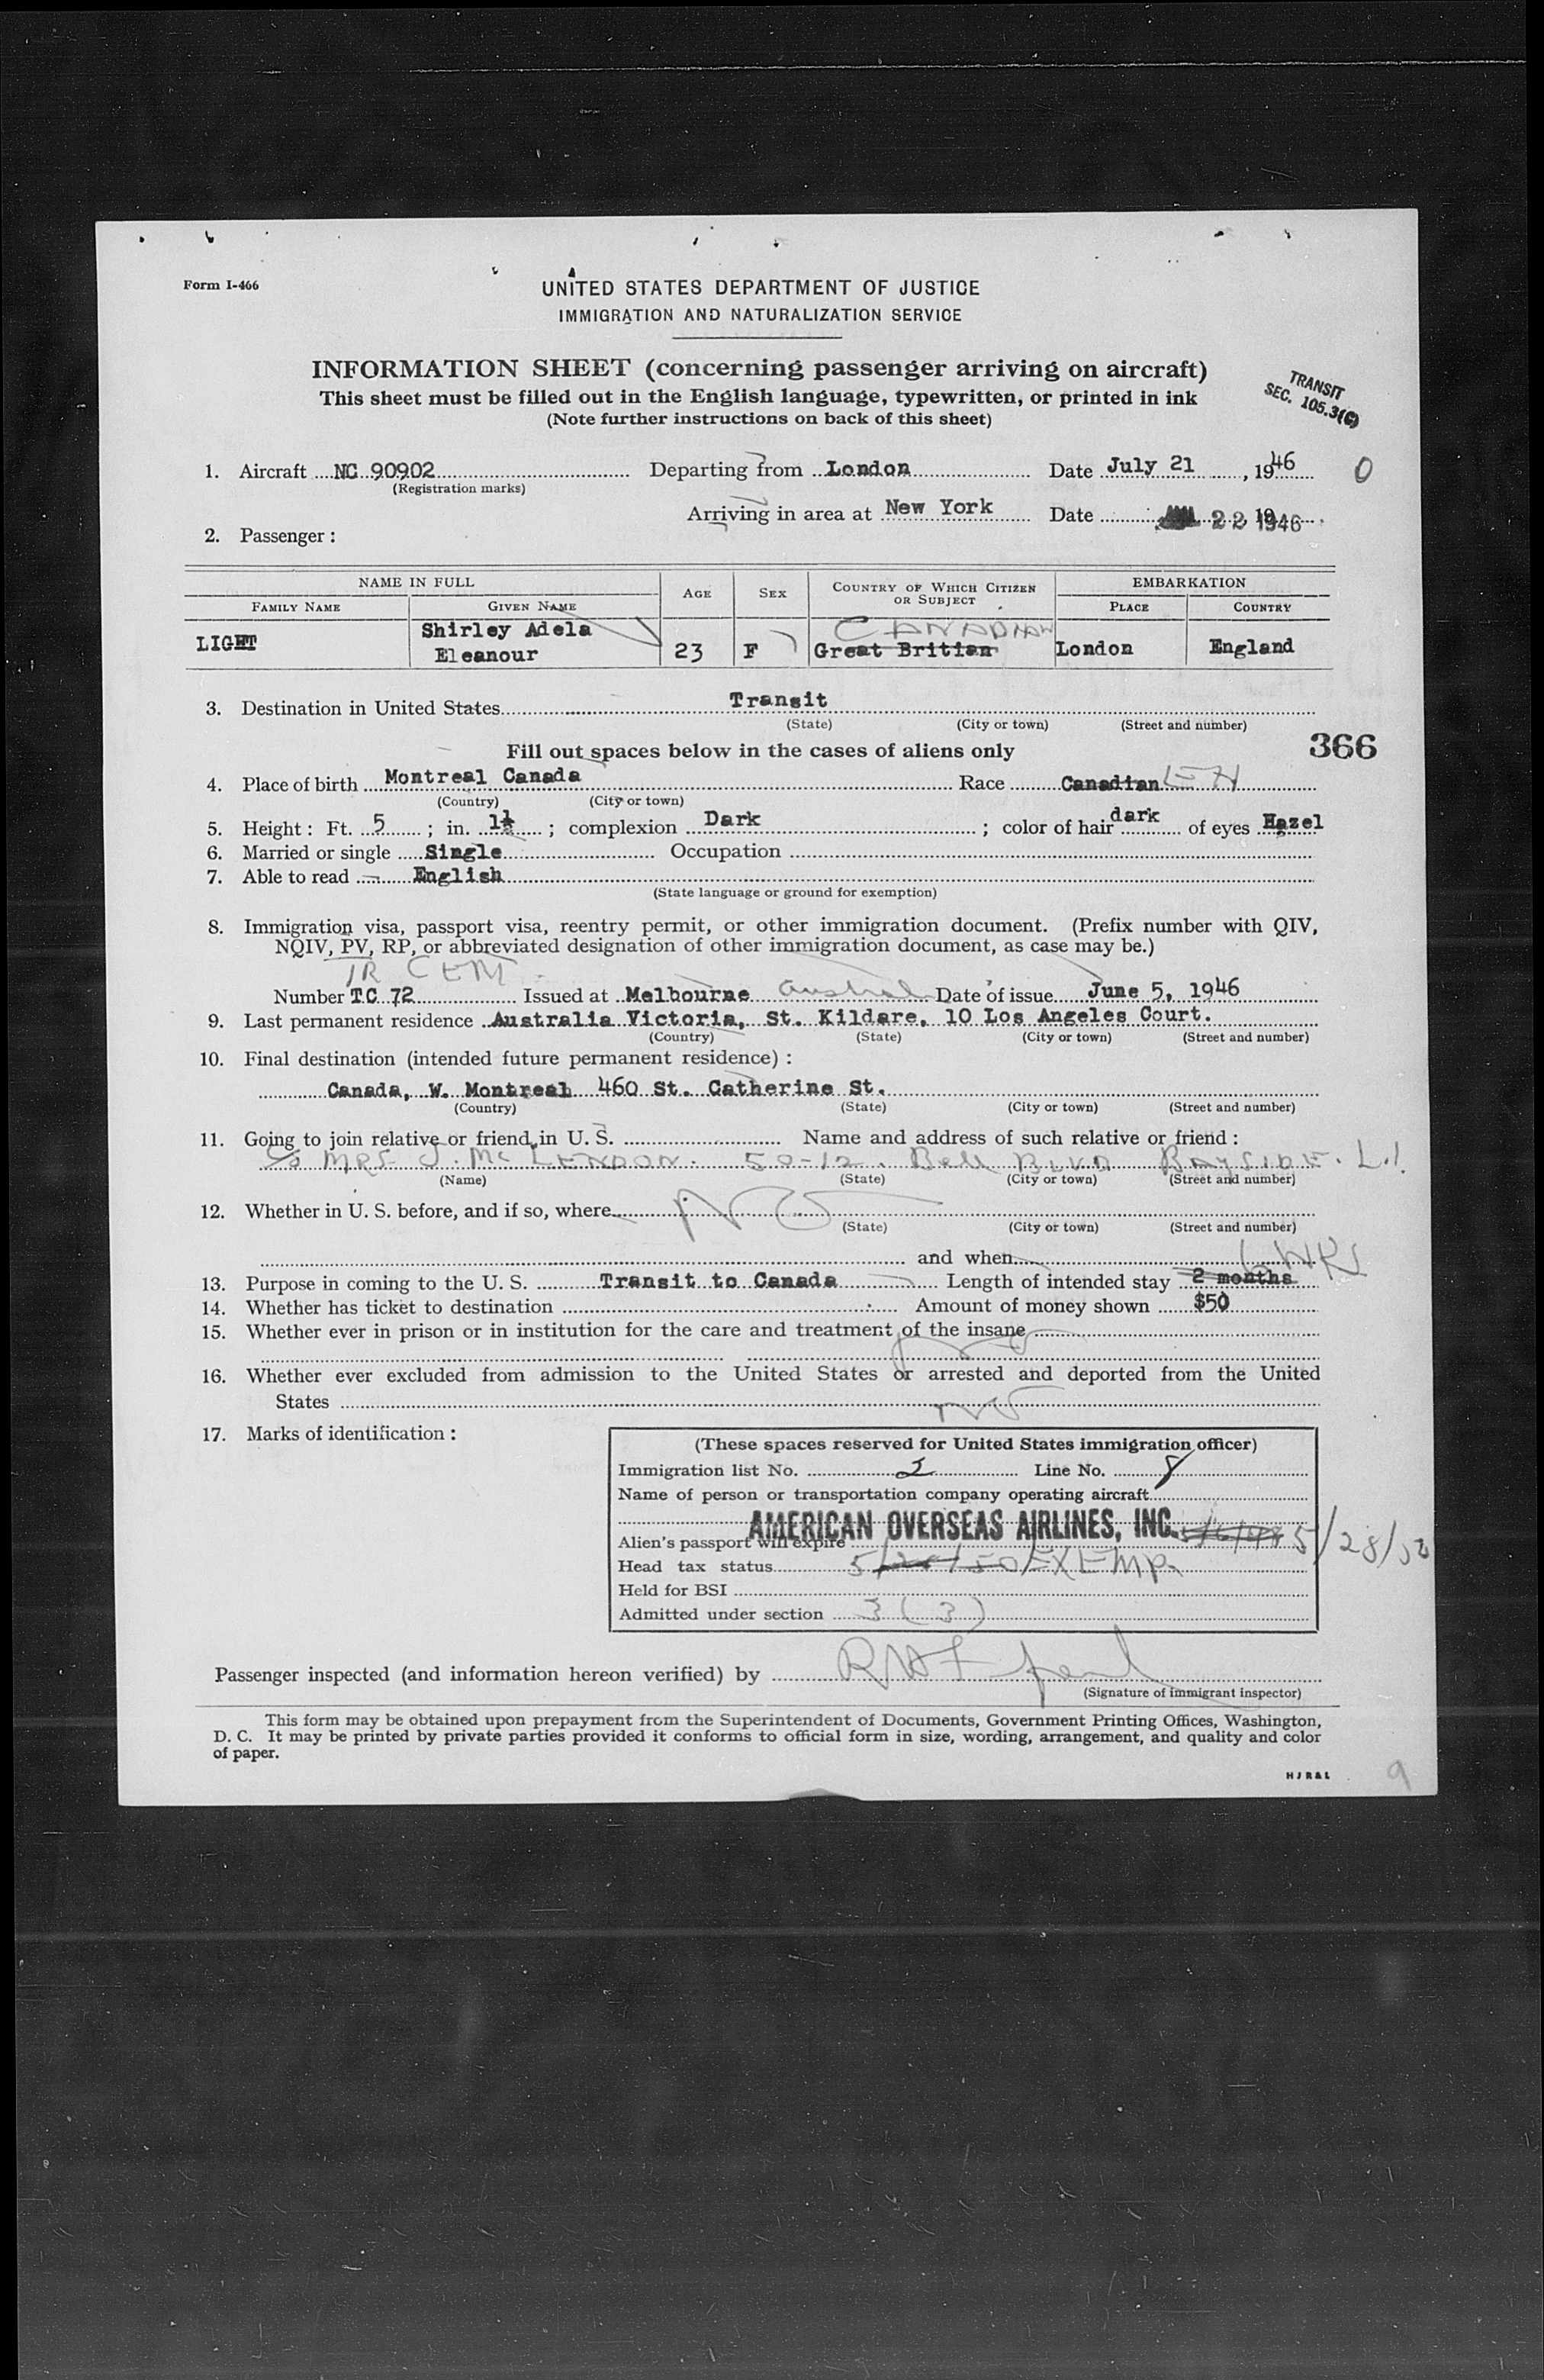 Form I-466
UNITED STATES DEPARTMENT OF JUSTICE
IMMIGRATION AND NATURALIZATION SERVICE
INFORMATION SHEET (concerning passenger arriving on aircraft)
This sheet must be filled out in the English language, typewritten, or printed in ink
(Note further instructions on back of this sheet)
TRANSIT
SEC. 105.3(C)
1. Aircraft NC 90902 Departing from London Date July 21, 1946 0
(Registration marks)
Arriving in area at New York Date 22 1946
2. Passenger:
NAME IN FULL AGE SEX COUNTRY OF WHICH CITIZEN OR SUBJECT EMBARKATION
FAMILY NAME GIVEN NAME PLACE COUNTRY
CANADIAN
LIGHT Shirley Adela Eleanour 23 F Great Britian London England
3. Destination in United States Transit
(State) (City or town) (Street and number)
Fill out spaces below in the cases of aliens only
366
4. Place of birth Montreal Canada Race Canadian
(Country) (City or town)
5. Height: Ft. 5; in. 1½; complexion Dark; color of hair dark of eyes Hazel
6. Married or single Single Occupation
7. Able to read English
(State language or ground for exemption)
8. Immigration visa, passport visa, reentry permit, or other immigration document. (Prefix number with QIV,
NQIV, PV, RP, or abbreviated designation of other immigration document, as case may be.)
Number TC 72 Issued at Melbourne Date of issue June 5, 1946
9. Last permanent residence Australia Victoria, St. Kildare, 10 Los Angeles Court.
(Country) (State) (City or town) (Street and number)
10. Final destination (intended future permanent residence):
Canada, W. Montreal 460 St. Catherine St.
(Country) (State) (City or town) (Street and number)
11. Going to join relative or friend in U. S. Name and address of such relative or friend:
c/o MRS J. Mc LENDON. 50-12. Bell BLVD BAYSIDE. L.I.
(Name) (State) (City or town) (Street and number)
12. Whether in U. S. before, and if so, where NO
(State) (City or town) (Street and number)
and when
13. Purpose in coming to the U. S. Transit to Canada Length of intended stay 2 months
14. Whether has ticket to destination Amount of money shown $50
15. Whether ever in prison or in institution for the care and treatment of the insane
no
16. Whether ever excluded from admission to the United States or arrested and deported from the United
States no
17. Marks of identification:
(These spaces reserved for United States immigration officer)
Immigration list No. 2 Line No. 8
Name of person or transportation company operating aircraft
AMERICAN OVERSEAS AIRLINES, INC.
Alien's passport will expire 5/28/50
Head tax status EXEMP
Held for BSI
Admitted under section 3 (3)
Passenger inspected (and information hereon verified) by
(Signature of immigrant inspector)
This form may be obtained upon prepayment from the Superintendent of Documents, Government Printing Offices, Washington,
D. C. It may be printed by private parties provided it conforms to official form in size, wording, arrangement, and quality and color
of paper.
HJR&L
9